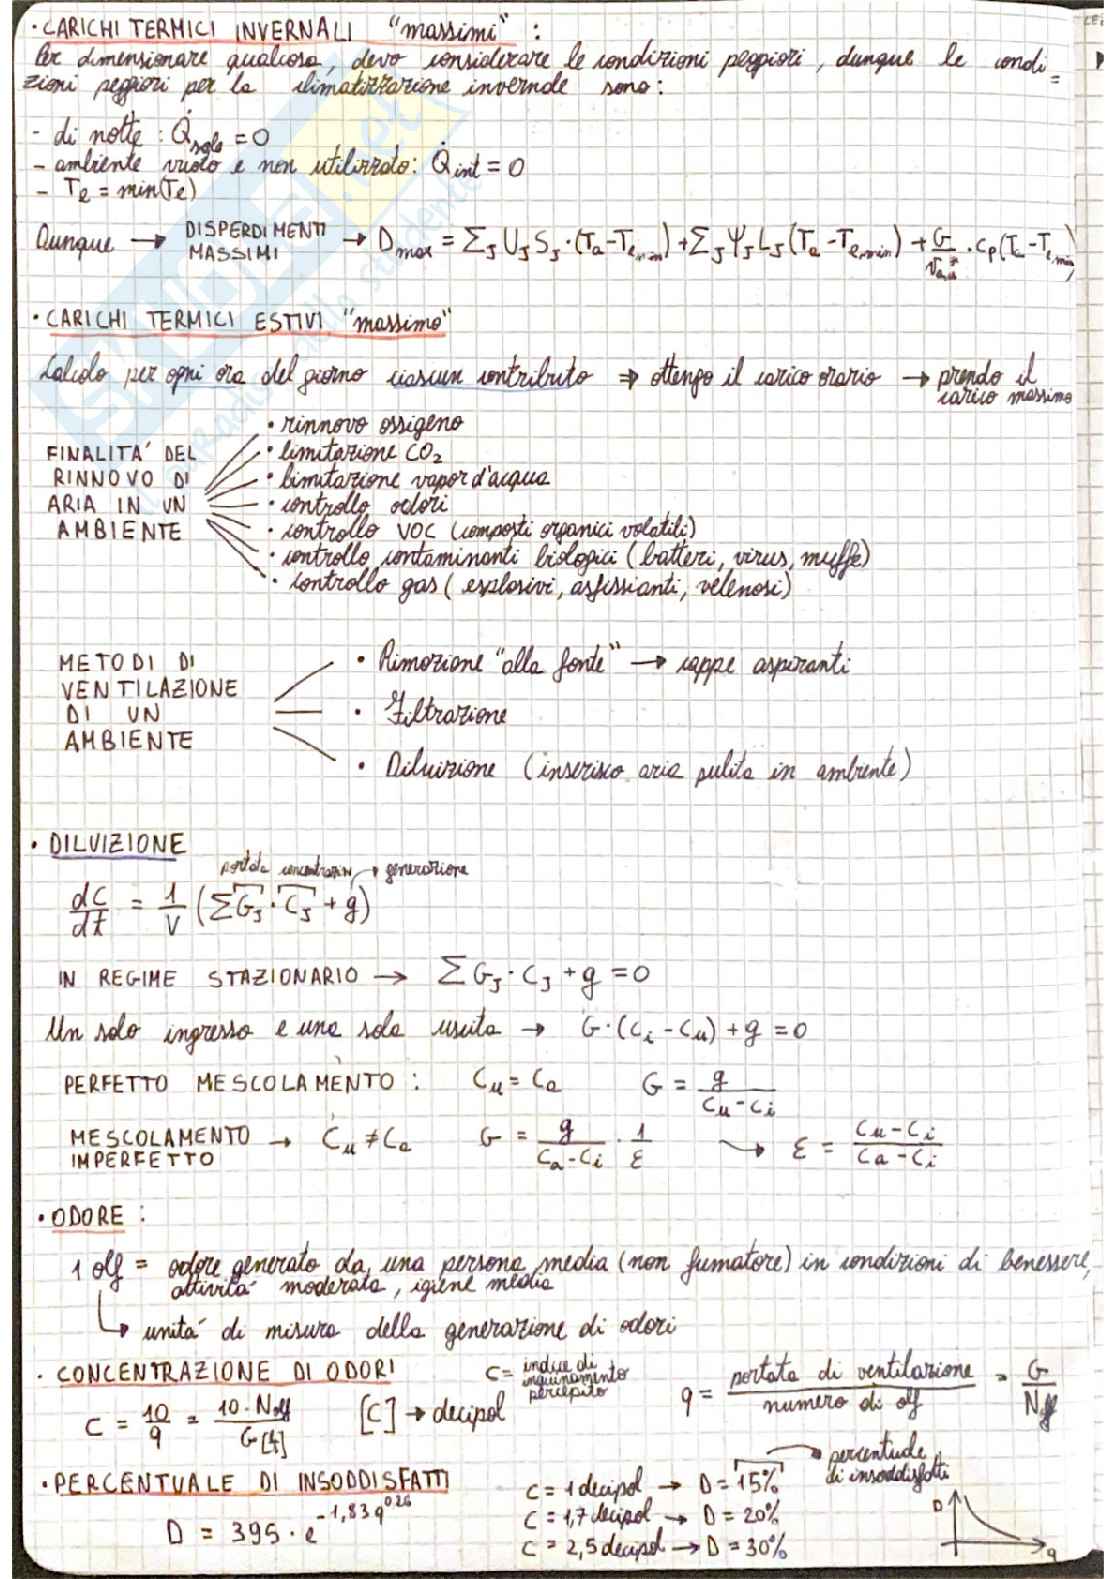 · CARICHI TERMICI INVERNALI "massimi" :
Per dimensionare qualcosa, devo considerare le condizioni peggiori, dunque le condi=
zioni peggiori per la climatizzazione invernale sono:
- di notte : Q̇sole = 0
- ambiente vuoto e non utilizzato: Q̇int = 0
- Te = min(Te)
Dunque → DISPERDIMENTI MASSIMI → Dmax = ΣJ UJ SJ · (Ta - Te,min) + ΣJ ΨJ LJ (Ta - Te,min) + G/v* · cp (Ta - Te,min)
· CARICHI TERMICI ESTIVI "massimo"
Calcolo per ogni ora del giorno ciascun contributo ⇒ ottengo il carico orario → prendo il carico massimo
FINALITA' DEL RINNOVO DI ARIA IN UN AMBIENTE
· rinnovo ossigeno
· limitazione CO₂
· limitazione vapor d'acqua
· controllo odori
· controllo VOC (composti organici volatili)
· controllo contaminanti biologici (batteri, virus, muffe)
· controllo gas (esplosivi, asfissianti, velenosi)
METODI DI VENTILAZIONE DI UN AMBIENTE
· Rimozione "alla fonte" → cappe aspiranti
· Filtrazione
· Diluizione (inserisco aria pulita in ambiente)
· DILUIZIONE
portata concentrazioni → generazione
dC/dt = 1/V (ΣGJ · CJ + g)
IN REGIME STAZIONARIO → ΣGJ · CJ + g = 0
Un solo ingresso e una sola uscita → G · (Ci - Cu) + g = 0
PERFETTO MESCOLAMENTO : Cu = Ca G = g/(Cu - Ci)
MESCOLAMENTO IMPERFETTO → Cu ≠ Ca G = g/(Ca - Ci) · 1/ε → ε = (Cu - Ci)/(Ca - Ci)
· ODORE :
1 olf = odore generato da una persona media (non fumatore) in condizioni di benessere,
attività moderata, igiene media
↳ unità di misura della generazione di odori
· CONCENTRAZIONE DI ODORI
C = indice di inquinamento percepito
q = portata di ventilazione / numero di olf = G/Nolf
C = 10/q = 10 · Nolf / G [C] → decipol
· PERCENTUALE DI INSODDISFATTI
D = 395 · e^(-1,83 q^0,26)
C = 1 decipol → D = 15% → percentuale di insoddisfatti
C = 1,7 decipol → D = 20%
C = 2,5 decipol → D = 30%
D
q